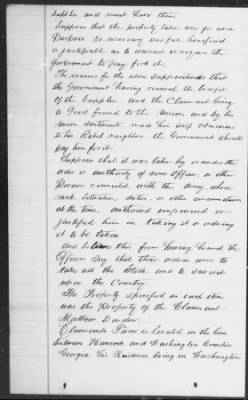 supplies and must have them
Suppose that the property taken was for such
Purpose so necessary useful, beneficial
or justifiable as to warrant or require the
Government to pay for it.
The reasons for the above suppositions is that
the Government having received the benefit
of the Supplies. and the Claimant being
a Good friend to the Union. and by his
Union sentiments made him self obnoxious
to his Rebel neighbors the Government should
pay him for it.
Suppose that it was taken by or under the
order or authority of some Officer, or other
Person connected with the Army, whose
rank, Situation, duties, or other circumstances
at the time, authorized empowered or
justified him in taking it or ordering
it to be taken
and believes this from having heard the
Officers Say that their orders were to
take all the Stock and to subsist
upon the Country
The Property specified in each item
was the Property of the Claimant
Matthew
Claimants Farm is located on the line
between Hancock and Washington Counties
Georgia His Residence being in Washington